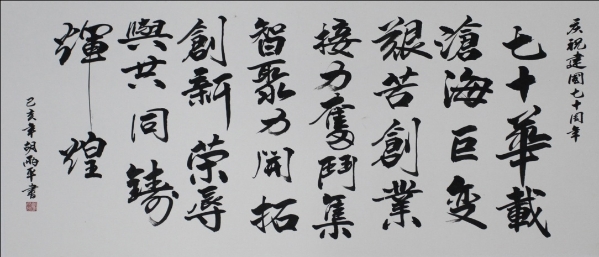 庆祝建国七十周年
七十華載
滄海巨变
艱苦創業
接力奮鬥集
智聚力開拓
創新荣辱
與共同鑄
輝煌
己亥年胡雨平書